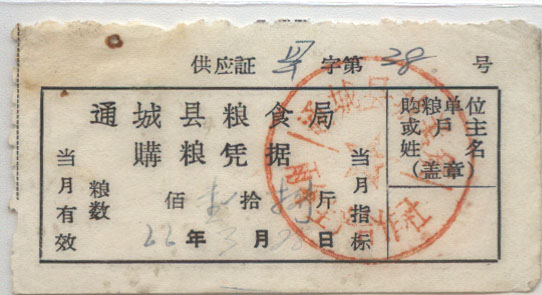 供应証 字第 28 号
通城县粮食局
購粮凭据
当月有效
粮数 佰 拾 斤
当月指标
22年3月28日
购粮单位
或户主
姓名
(盖章)